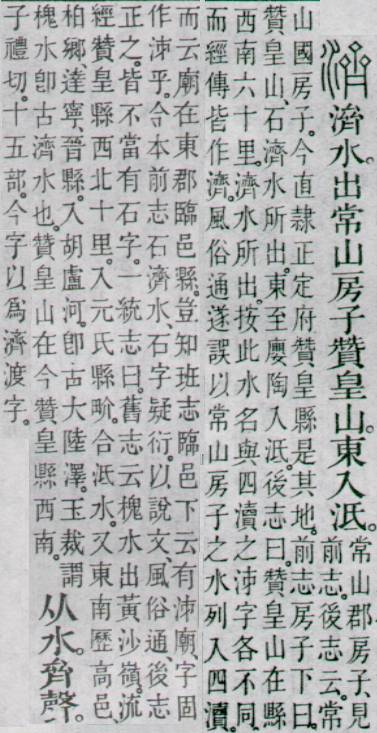 濟水。出常山房子贊皇山。東入泜。
常山郡房子、見
前志。後志云、常
山國房子。今直隷正定府贊皇縣是其地。前志房子下曰。
贊皇山、石濟水所出。東至廮陶入泜。後志曰。贊皇山在縣
西南六十里。濟水所出。按此水名與四瀆之泲字各不同。
而經傳皆作濟。風俗通遂誤以常山房子之水列入四瀆。
而云廟在東郡臨邑縣。豈知班志臨邑下云有泲廟。字固
作泲乎。今本前志石濟水、石字疑衍。以說文、風俗通、後志
正之。皆不當有石字。一統志曰。舊志云槐水出黃沙嶺。流
經贊皇縣西北十里。入元氏縣畍。合泜水。又東南歷高邑、
柏鄕、達寧、晉縣。入胡盧河。卽古大陸澤。玉裁謂
槐水卽古濟水也。贊皇山在今贊皇縣西南。
从水。齊聲。
子禮切。十五部。今字以爲濟渡字。